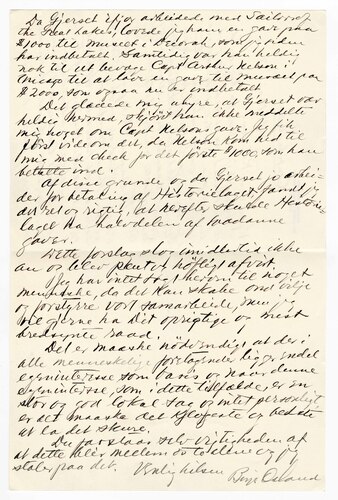 Da Gjerset i fjor arbeidede med Sailors of
the Great Lakes, lovede jeg ham en gave paa
$1000 til museet i Decorah, som jeg siden
har indbetalt. Samtidig var han heldig
nok til at bevæge Capt Arthur Nelson i
Chicago til at love en gave til museet paa
$2000, som ogsaa nu er indbetalt.
Det glædede mig uhyre, at Gjerset var
heldig hermed, skjönt han ikke meddelte
mig noget om Capt Nelsons gave. Jeg fik
först vide om det, da Nelson kom hen til
mig med check for det förste $1000, som han
betalte ind.
Af disse grunde og da Gjerset jo arbei-
der for betaling af Historielaget fandt jeg
det ret og rigtig, at herefter skulde Historie-
laget ha halvdelen af saadanne
gaver.
Dette forslag slog imidlertid ikke
an og blev pent og höflig afvist.
Jeg har intet sagt herom til noget
menneske, da det kan skabe ond vilje
og forstyrre vort samarbeide, men jeg
vil gjerne ha Dit oprigtige og mest
bredsynte raad.
Det er maaske nödvendigt, at der i
alle menneskelige foretagender ligger endel
egeninteresse som basis og naar denne
egeninteresse, som i dette tilfælde, er en
stor og god lokal sag og intet personligt
er det maaske det klogeste og bedste
at la det skure.
Du forstaar selv vigtigheden af
at dette blir mellem os to alene og jeg
stoler paa det. Venlig hilsen Birger Osland